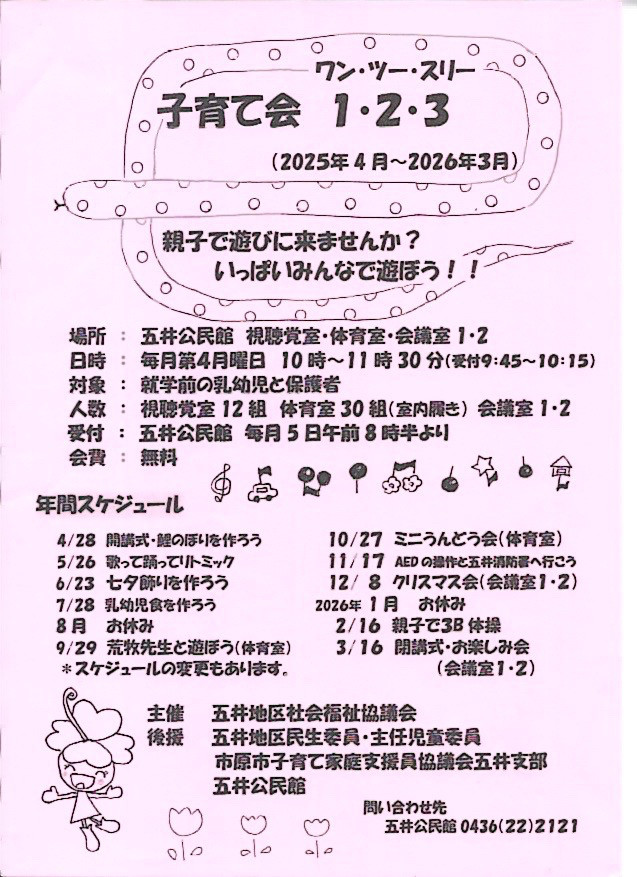 ワン・ツー・スリー
子育て会 1・2・3
(2025年4月～2026年3月)
親子で遊びに来ませんか？
いっぱいみんなで遊ぼう！！
場所 : 五井公民館 視聴覚室・体育室・会議室1・2
日時 : 毎月第4月曜日 10時～11時30分(受付9:45～10:15)
対象 : 就学前の乳幼児と保護者
人数 : 視聴覚室12組 体育室30組(室内履き) 会議室1・2
受付 : 五井公民館 毎月5日午前8時半より
会費 : 無料
年間スケジュール
4/28 開講式・鯉のぼりを作ろう
5/26 歌って踊ってリトミック
6/23 七夕飾りを作ろう
7/28 乳幼児食を作ろう
8月 お休み
9/29 荒牧先生と遊ぼう(体育室)
＊スケジュールの変更もあります。
10/27 ミニうんどう会(体育室)
11/17 AEDの操作と五井消防署へ行こう
12/8 クリスマス会(会議室1・2)
2026年 1月 お休み
2/16 親子で3B体操
3/16 閉講式・お楽しみ会
(会議室1・2)
主催 五井地区社会福祉協議会
後援 五井地区民生委員・主任児童委員
市原市子育て家庭支援員協議会五井支部
五井公民館
問い合わせ先
五井公民館 0436(22)2121